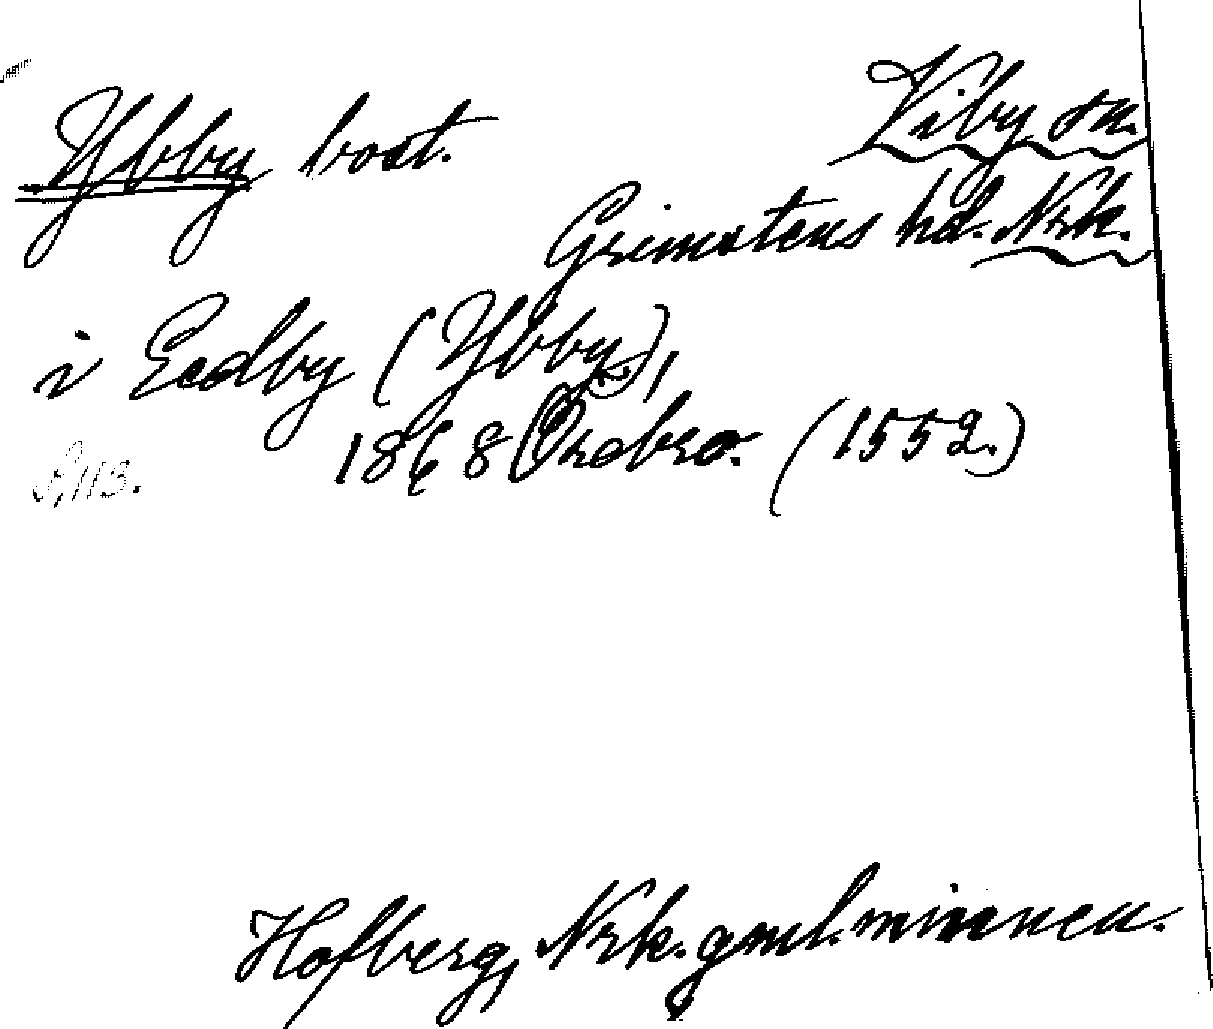 Ybby bost. Viby sn.
Grimstens hd. Nrk.
i Eedby (Ybby),
1868 Örebro. (1552.)
S, 113.
Hofberg, Nrk. gml. minnen.